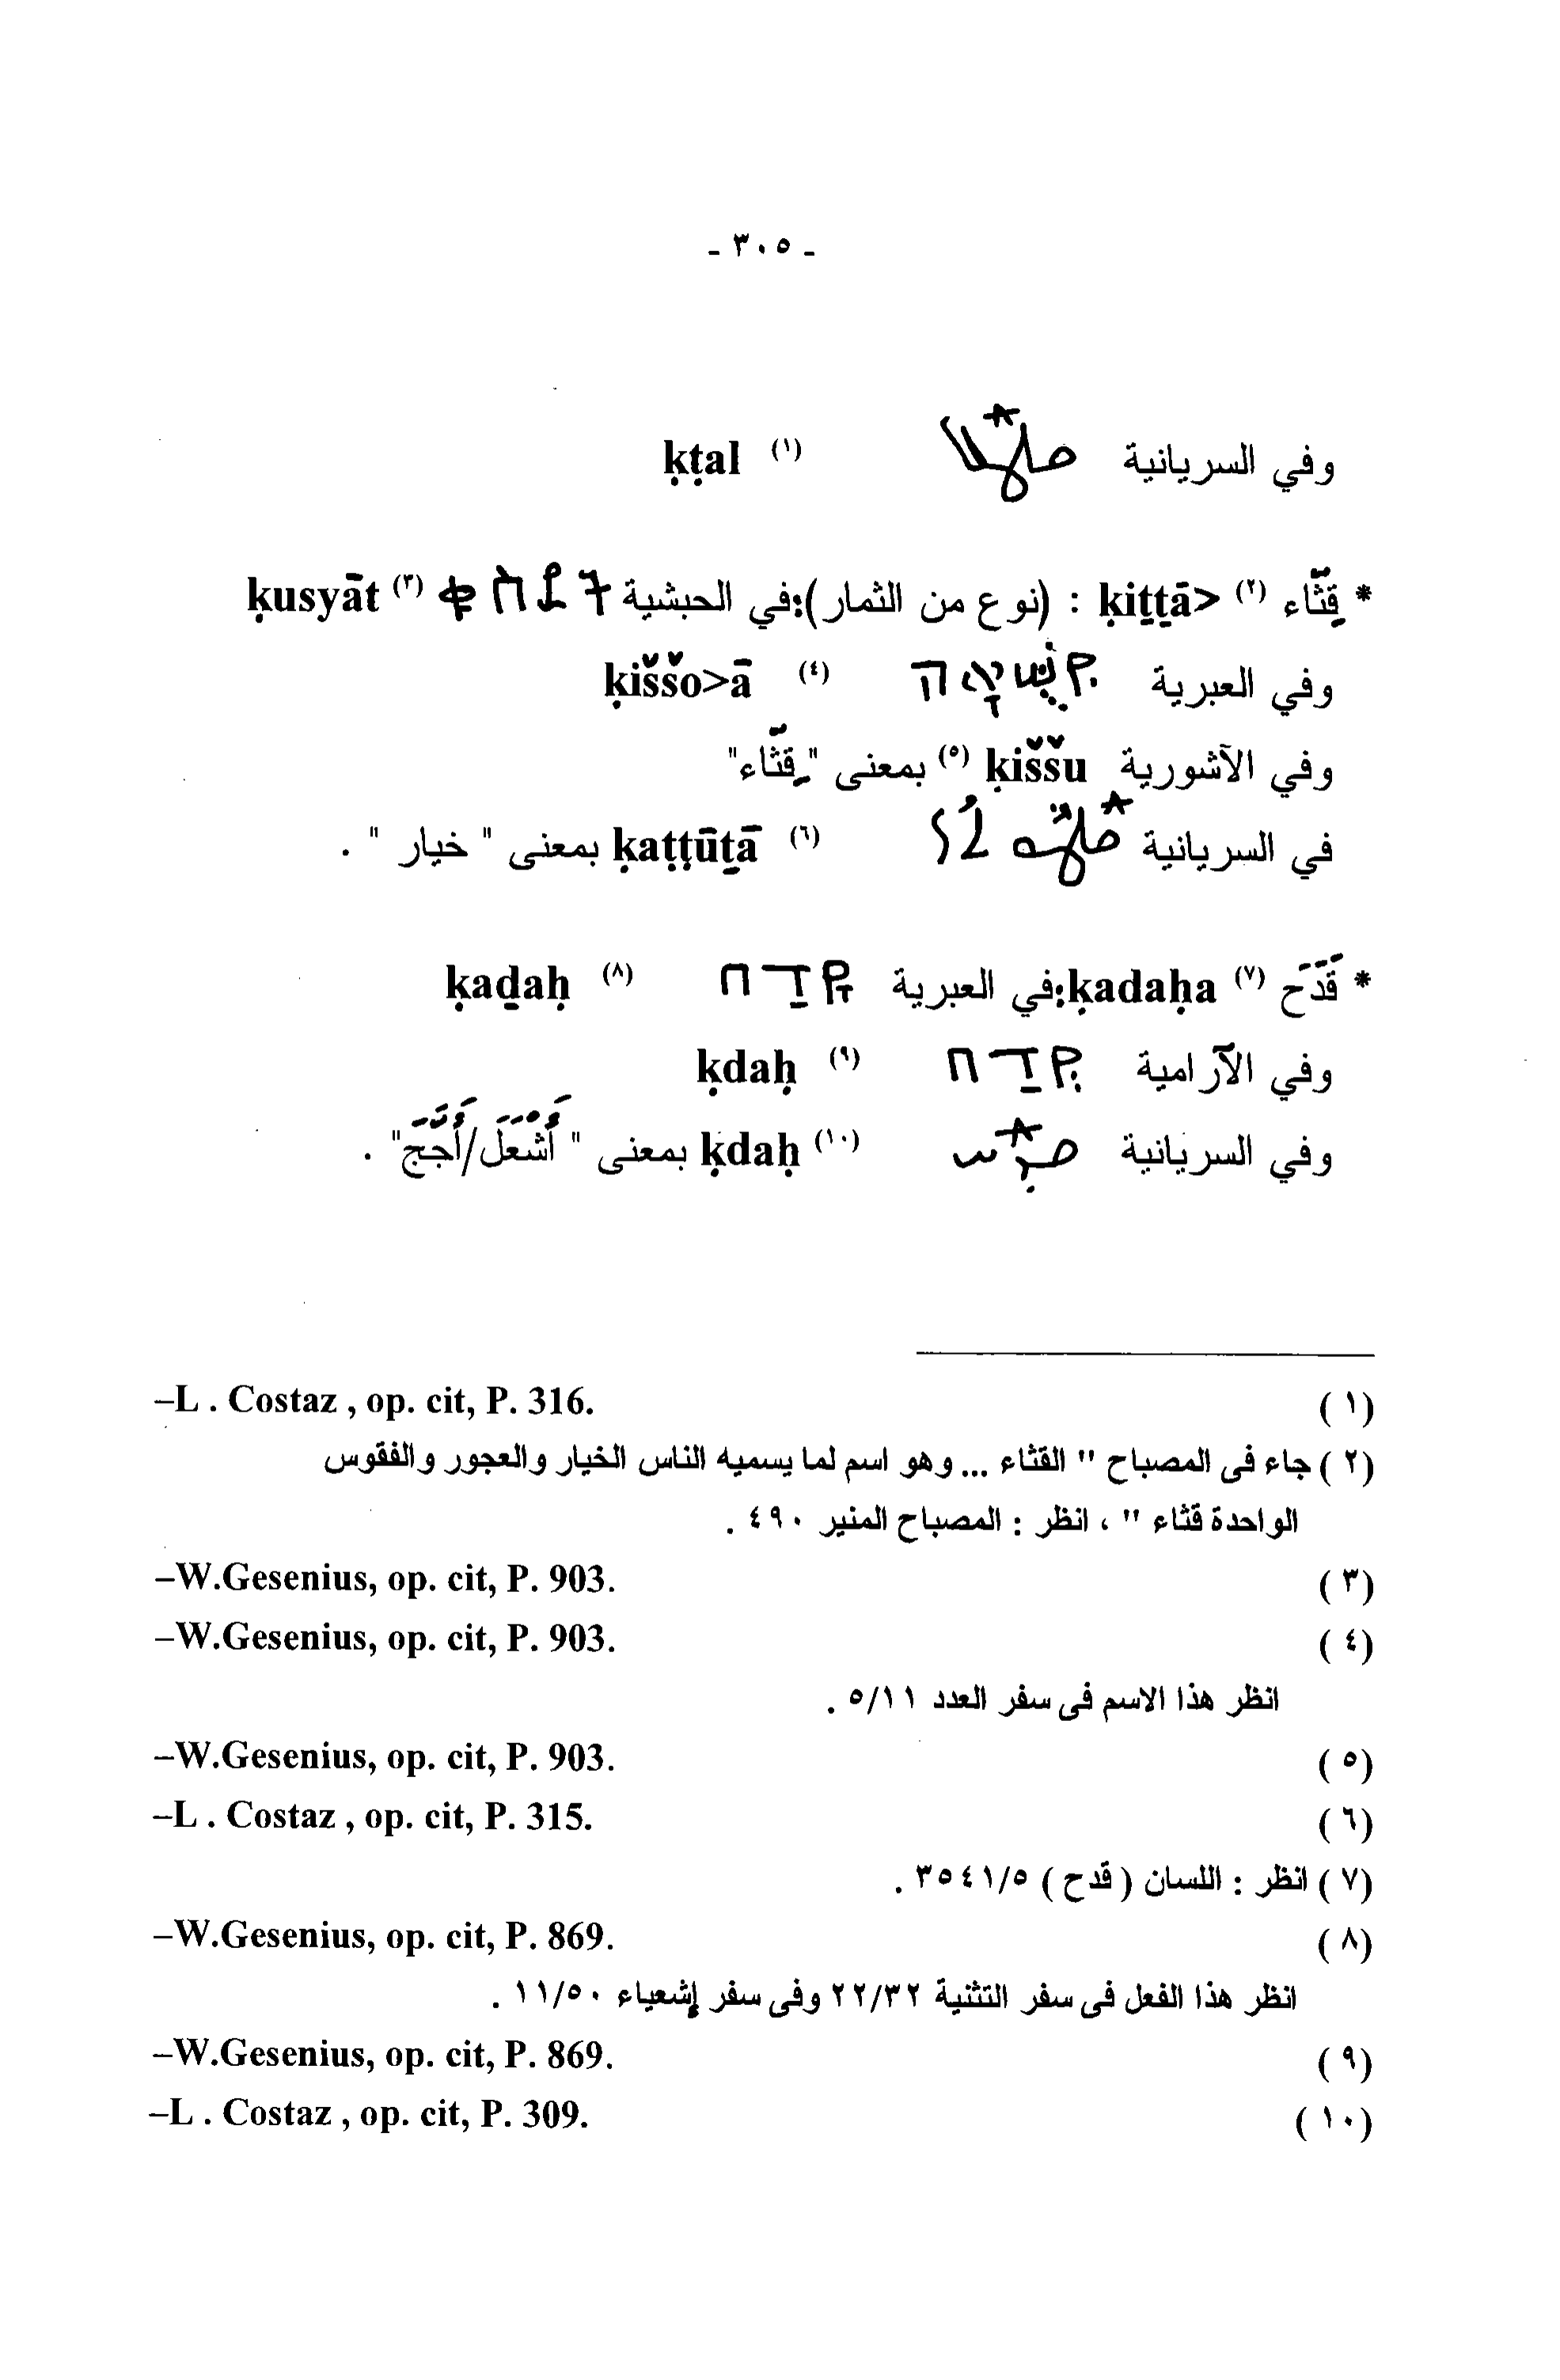 - ٣٠٥ -
وفي السريانية (١) ḳṭal
* قِثَّاء (٢) ḳiṯṯā> : (نوع من الثمار):في الحبشية (٣) ḳusyāt
وفي العبرية (٤) ḳiššo>ā
وفي الآشورية ḳiššu (٥) بمعنى "قِثَّاء"
في السريانية (٦) ḳaṭṭūṯā بمعنى " خيار " .
* قَدَحَ (٧) ḳadaḥa:في العبرية קָדַח (٨) ḳaḏaḥ
وفي الآرامية קְדַח (٩) ḳdaḥ
وفي السريانية (١٠) ḳdaḥ بمعنى " أَشْعَلَ/أَجَّجَ" .
(١) –L . Costaz , op. cit, P. 316.
(٢) جاء فى المصباح " القثاء ... وهو اسم لما يسميه الناس الخيار والعجور والفقوس
الواحدة قثاء " ، انظر : المصباح المنير ٤٩٠ .
(٣) –W.Gesenius, op. cit, P. 903.
(٤) –W.Gesenius, op. cit, P. 903.
انظر هذا الاسم فى سفر العدد ٥/١١ .
(٥) –W.Gesenius, op. cit, P. 903.
(٦) –L . Costaz , op. cit, P. 315.
(٧) انظر : اللسان ( قدح ) ٣٥٤١/٥ .
(٨) –W.Gesenius, op. cit, P. 869.
انظر هذا الفعل فى سفر التثنية ٢٢/٣٢ وفى سفر إشعياء ١١/٥٠ .
(٩) –W.Gesenius, op. cit, P. 869.
(١٠) –L . Costaz , op. cit, P. 309.